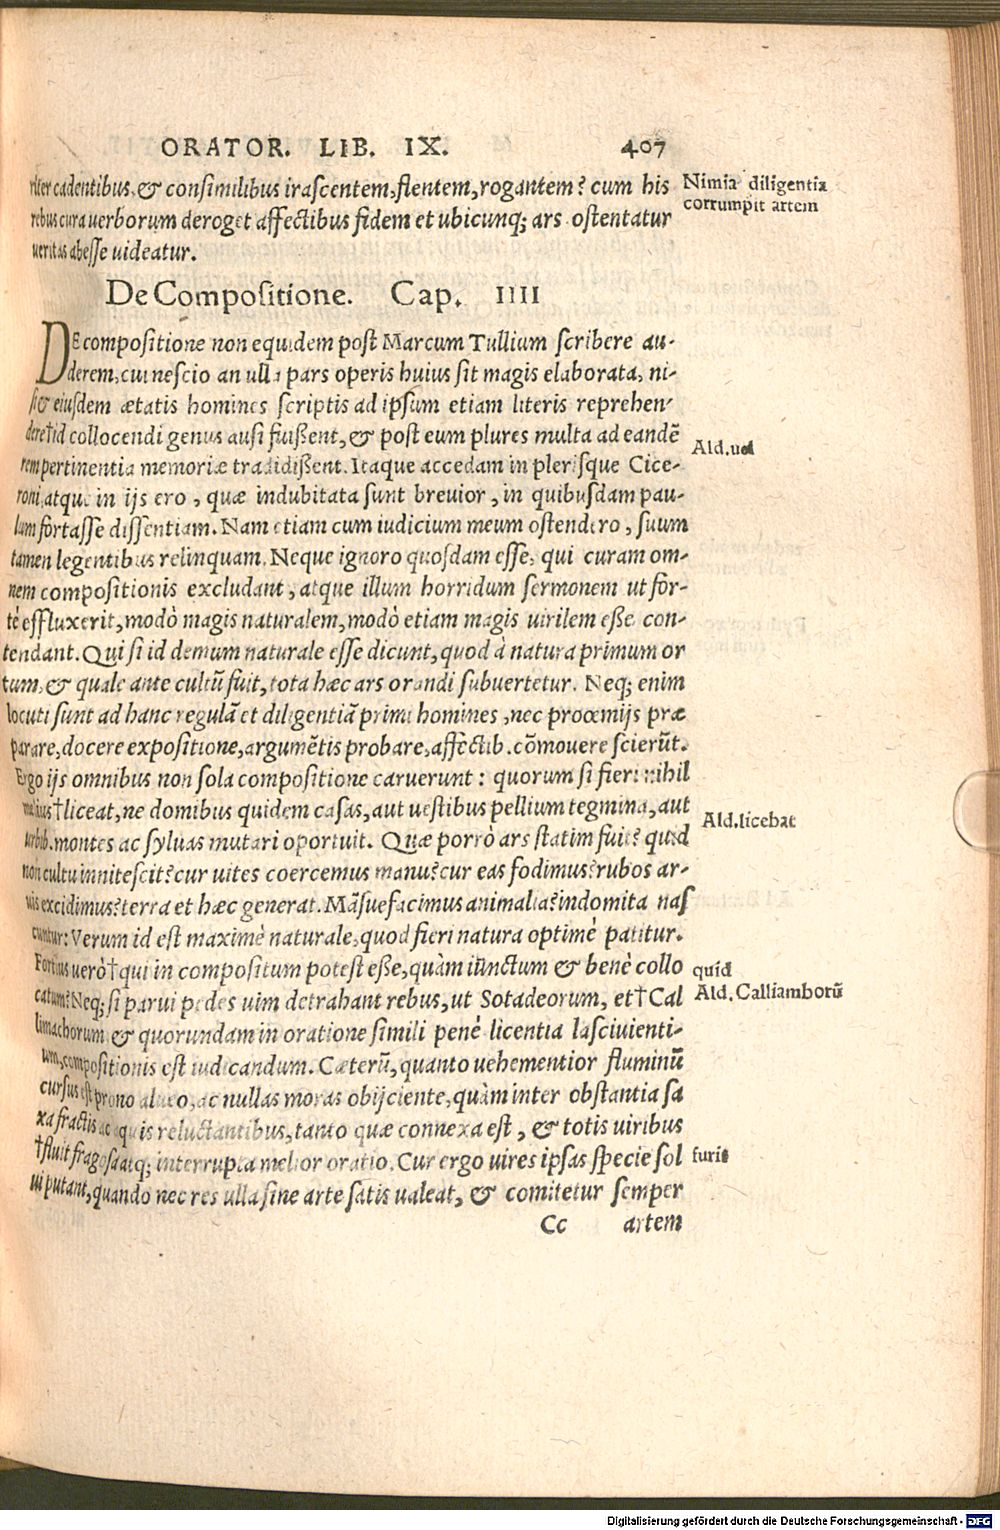 ORATOR. LIB. IX. 407
riter cadentibus, & consimilibus irascentem, flentem, rogantem? cum his
rebus cura uerborum deroget affectibus fidem et ubicunq; ars ostentatur
ueritas abesse uideatur.
Nimia diligentia
corrumpit artem
De Compositione. Cap. IIII
DE compositione non equidem post Marcum Tullium scribere au-
derem, cui nescio an ulla pars operis huius sit magis elaborata, ni-
si & eiusdem ætatis homines scriptis ad ipsum etiam literis reprehen-
dere†id collocendi genus ausi fuißent, & post eum plures multa ad eandē
Ald.uel
rem pertinentia memoriæ tradidißent. Itaque accedam in plerisque Cice-
roni, atque in ijs ero, quæ indubitata sunt breuior, in quibusdam pau-
lum fortasse dissentiam. Nam etiam cum iudicium meum ostendero, suum
tamen legentibus relinquam. Neque ignoro quosdam esse, qui curam om-
nem compositionis excludant, atque illum horridum sermonem ut for-
tè effluxerit, modò magis naturalem, modò etiam magis uirilem eße con-
tendant. Qui si id demum naturale esse dicunt, quod à natura primum or
tum, & quale ante cultū fuit, tota hæc ars orandi subuertetur. Neq; enim
locuti sunt ad hanc regulā et diligentiā primi homines, nec proœmijs præ
parare, docere expositione, argumētis probare, affectib. cōmouere scierūt.
Ergo ijs omnibus non sola compositione caruerunt: quorum si fieri nihil
melius†liceat, ne domibus quidem casas, aut uestibus pellium tegmina, aut
Ald.licebat
urbib. montes ac syluas mutari oportuit. Quæ porrò ars statim fuit? quid
non cultu innitescit? cur uites coercemus manu? cur eas fodimus? rubos ar-
uis excidimus? terra et hæc generat. Māsuefacimus animalia? indomita nas
cuntur: Verum id est maximè naturale, quod fieri natura optimè patitur.
Fortius uerò†qui in compositum potest eße, quàm iūnctum & benè collo
quid
catum? Neq; si parui pedes uim detrahant rebus, ut Sotadeorum, et†Cal
Ald. Calliamborū
limachorum & quorundam in oratione simili penè licentia lasciuienti-
um, compositionis est iudicandum. Cæterū, quanto uehementior fluminū
cursus est prono alueo, ac nullas moras obijciente, quàm inter obstantia sa
xa fractis ac aquis reluctantibus, tanto quæ connexa est, & totis uiribus
†fluit fragosa atq; interrupta melior oratio. Cur ergo uires ipsas specie sol
furit
ui putant, quando nec res ulla sine arte satis ualeat, & comitetur semper
Cc artem
Digitalisierung gefördert durch die Deutsche Forschungsgemeinschaft - DFG